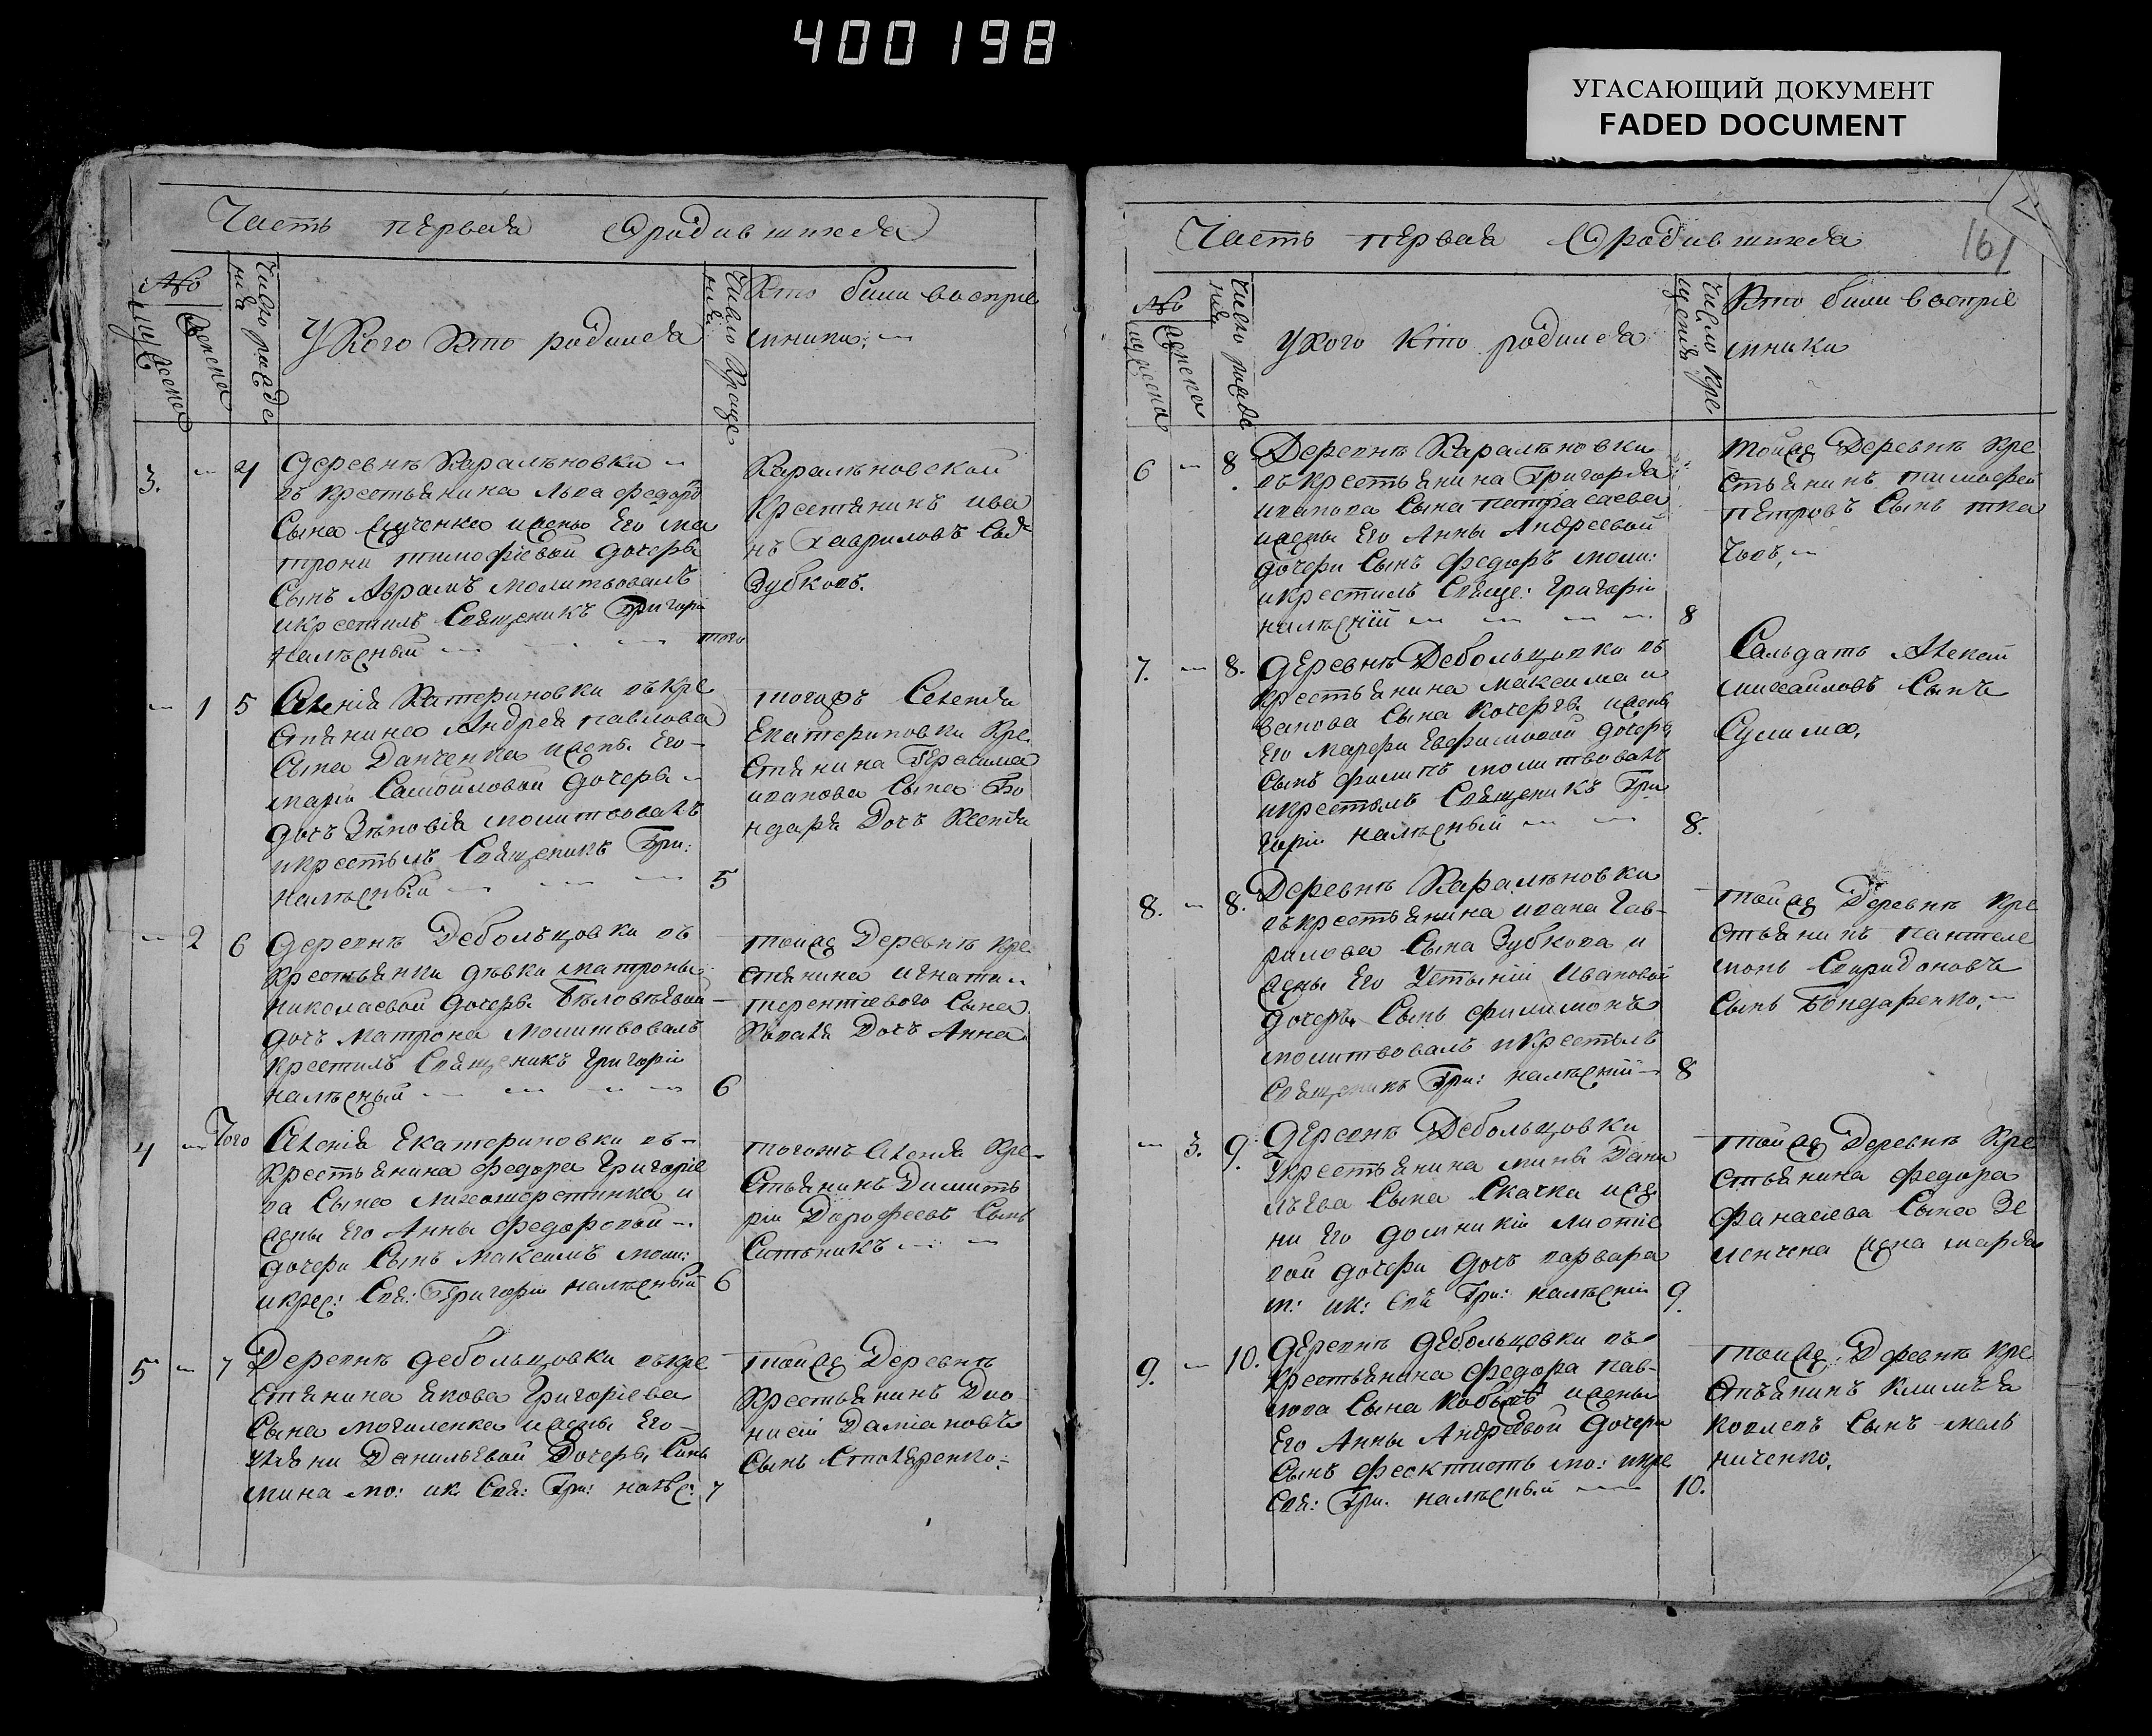 400198
УГАСАЮЩИЙ ДОКУМЕНТ
FADED DOCUMENT
Часть первая О родившихся
№
Мужеска
Женска
Число рожде
нія
У кого кто родился
Число Креще
нія
Кто были воспріе
мники
3. 4
деревнѣ Каралѣновки
въ крестьянина Льва федоро
Сына жены Его ма
трони тимофіевой дочерь
Сынъ Аврамъ молитвовалъ
и крестилъ Священикъ Григорій
Налѣсный
того
Каралѣновской
Крестянинъ ива
нъ Гавриловъ Сы
Зубковъ.
1 5
Селенія Катериновки въ кре
стянина Андрея павлова
Сына Данченка жены Его
маріи Самойловой дочерь
дочь Зѣновія молитвовалъ
и крестилъ Священикъ Гри:
налѣсный
5
тогожъ Селенія
Екатериновки Кре
стянина Герасима
иванова Сына Бо
ндаря Дочь Ксенія
2 6
деревнѣ Дебольцовки въ
Крестьянки дѣвки матроны
николаевой дочерь
дочь матрона молитвовалъ
крестилъ Священикъ Григорій
налѣсный
6
тойже Деревнѣ кре
стянина игнати
терентіевого Сына
Коваля Дочь Анна
4 Того
Селенія Екатериновки въ
Крестьянина федора Григоріе
ва Сына и
жены Его Анны федоровой
дочери Сынъ Максимъ моли:
и крес: Свя: Григорій налѣсный
6
тогожъ Селенія Кре
Стьянинъ Димит
рій Дорофеевъ Сынъ
Ситникъ
5 7
Деревнѣ дебольцовки въ кре
стянина Якова Григоріева
Сына могиленка жены Его
Уляни Данильевой Дочерь Синъ
мина мо: и к. Свя: Гри: налѣс:
7
тойже Деревнѣ
Крестьянинъ Дио
нисій Даміановъ
Сынъ Столяренко
Часть первая О родившихся
161
№
Мужеска
Женска
Число рожде
нія
У кого кто родился
Число Кре
щенія
Кто были воспріе
мники
6 8.
Деревнѣ Каралѣновки
въ крестьянина Григорія
иванова Сына
жены Его Анны Андреевой
дочери Сынъ федоръ моли:
и крестилъ Свяще: Григорій
налѣсній
8
тойже Деревнѣ кре
стьянинъ тимофей
петровъ Сынъ тка
човъ,
7. 8.
деревнѣ Дебольцовки въ
крестьянина максима и
ванова Сына кочерги жены
Его Марфи Евфимовой дочерь
Сынъ филипъ молитвовалъ
и крестилъ Священикъ Гри
горій налѣсный
8.
Салдатъ Алексей
михайловъ Сынъ
Сулима,
8. 8.
Деревнѣ Каралѣновки
въ крестьянина ивана Гав
рилова Сына Зубкова и
жены Его Устыніи Ивановой
дочерь Сынъ филимонъ
молитвовалъ и крестилъ
Священикъ Гри: налѣсній
8
тойже Деревнѣ Кре
стьянинъ пантеле
монъ Спиридоновъ
Сынъ Бондаренко,
3. 9.
деревнѣ Дебольцовки
у крестьянина мины Дани
лѣева Сына Скачка и же
ни Его домникіи
вой дочери дочь варвара
м: и к: свя Гри: налѣсній
9.
тойже Деревнѣ Кре
стьянина федора
фанасіева Сына Зе
ленчена жена марфа
9. 10.
деревнѣ дебольцовки въ
крестьянина федора пав
лова Сына жены
Его Анны Андрѣевой дочери
Сынъ феоктистъ мо: и кре
Свя: Гри. налѣсный
10.
тойже: Деревнѣ кре
стьянинъ
Сынъ мель
ниченко.